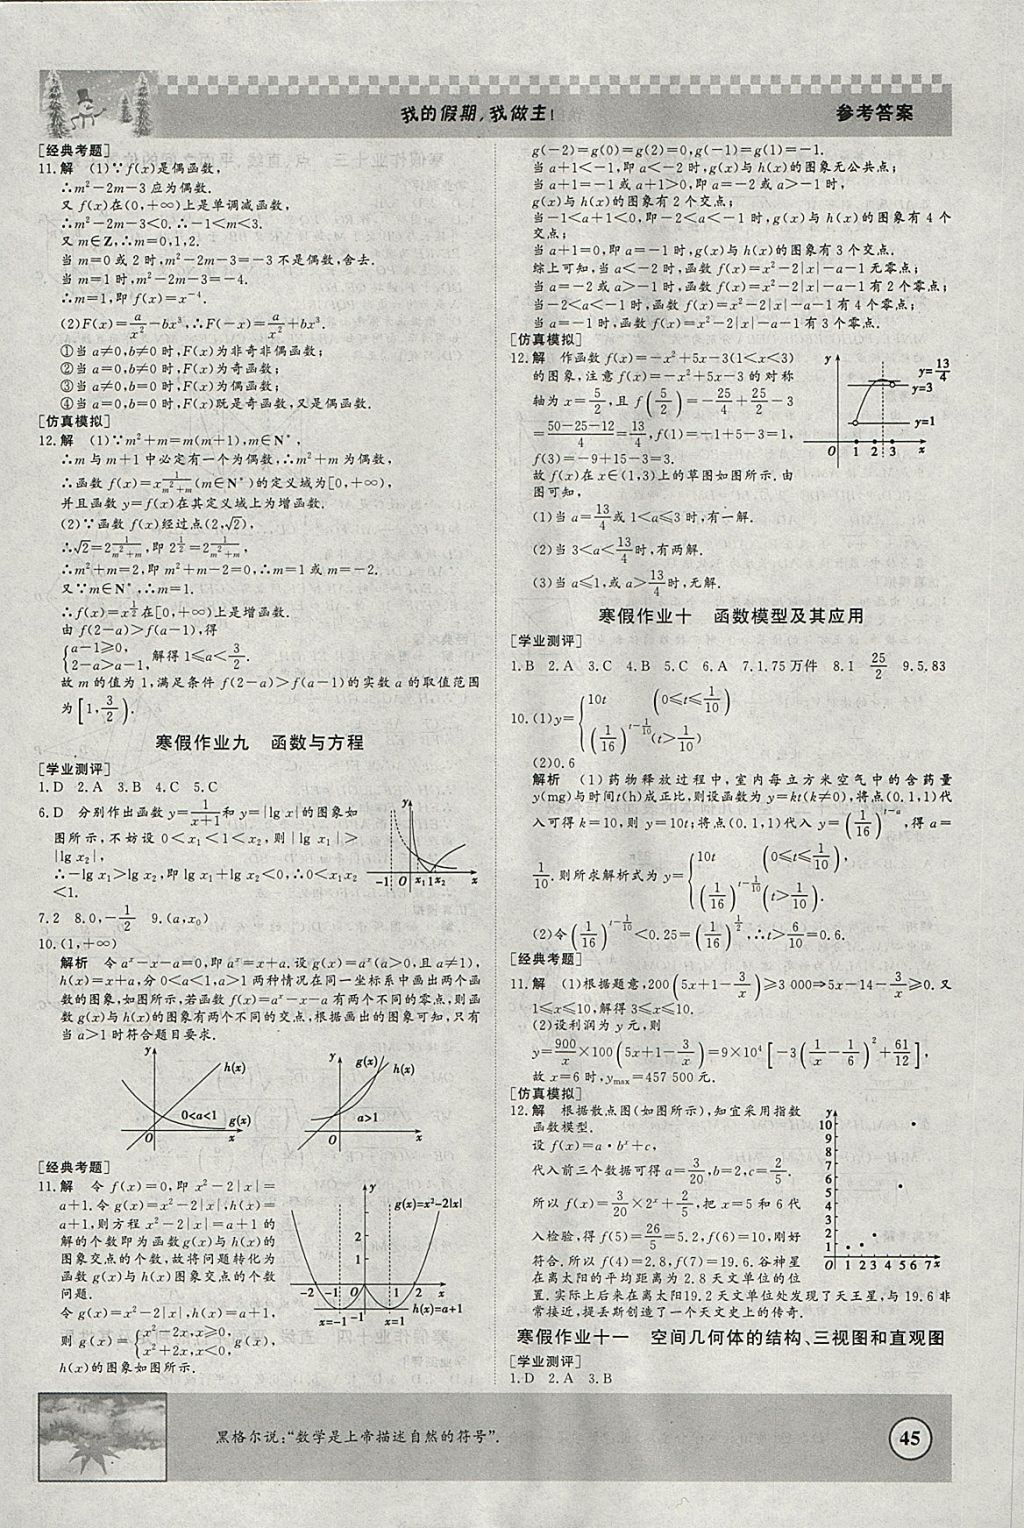 我的假期,我做主!
参考答案
[经典考题]
11.解 (1)∵f(x)是偶函数,
∴m²-2m-3应为偶数.
又f(x)在(0,+∞)上是单调减函数,
∴m²-2m-3<0.∴-1<m<3.
又m∈Z,∴m=0,1,2.
当m=0或2时,m²-2m-3=-3不是偶数,舍去.
当m=1时,m²-2m-3=-4.
∴m=1,即f(x)=x⁻⁴.
(2)F(x)=a/x²-bx³,∴F(-x)=a/x²+bx³.
①当a≠0,b≠0时,F(x)为非奇非偶函数;
②当a=0,b≠0时,F(x)为奇函数;
③当a≠0,b=0时,F(x)为偶函数;
④当a=0,b=0时,F(x)既是奇函数,又是偶函数.
[仿真模拟]
12.解 (1)∵m²+m=m(m+1),m∈N*,
∴m与m+1中必定有一个为偶数,∴m²+m为偶数.
∴函数f(x)=x^(1/(m²+m))(m∈N*)的定义域为[0,+∞),
并且函数y=f(x)在其定义域上为增函数.
(2)∵函数f(x)经过点(2,√2),
∴√2=2^(1/(m²+m)),即2^(1/2)=2^(1/(m²+m)),
∴m²+m=2,即m²+m-2=0,∴m=1或m=-2.
又∵m∈N*,∴m=1.
∴f(x)=x^(1/2)在[0,+∞)上是增函数.
由f(2-a)>f(a-1),得
{a-1≥0,
2-a>a-1, 解得1≤a<3/2.
故m的值为1,满足条件f(2-a)>f(a-1)的实数a的取值范围
为[1,3/2).
寒假作业九 函数与方程
[学业测评]
1.D 2.A 3.B 4.C 5.C
6.D 分别作出函数y=1/(x+1)和y=|lg x|的图象如
图所示,不妨设0<x₁<1<x₂,则|lg x₁|>
|lg x₂|,
∴-lg x₁>lg x₂,即lg x₁+lg x₂<0,∴0<x₁x₂
<1.
y
-1 O x₁ 1 x₂ x
7.2 8.0,-1/2 9.(a,x₀)
10.(1,+∞)
解析 令aˣ-x-a=0,即aˣ=x+a.设g(x)=aˣ(a>0,且a≠1),
h(x)=x+a,分0<a<1,a>1两种情况在同一坐标系中画出两个函
数的图象,如图所示,若函数f(x)=aˣ-x-a有两个不同的零点,则函
数g(x)与h(x)的图象有两个不同的交点,根据画出的图象可知,只有
当a>1时符合题目要求.
y h(x) 0<a<1 g(x) O x
y g(x) h(x) a>1 O x
[经典考题]
11.解 令f(x)=0,即x²-2|x|=
a+1.令g(x)=x²-2|x|,h(x)=
a+1,则方程x²-2|x|=a+1的
解的个数即为函数g(x)与h(x)的
图象交点的个数,故将问题转化为
函数g(x)与h(x)图象交点的个数
问题.
令g(x)=x²-2|x|,h(x)=a+1,
则g(x)={x²-2x,x≥0,
x²+2x,x<0,g(x)与
h(x)的图象如图所示.
y g(x)=x²-2|x|
2
1
-2 -1 O 1 2 x
h(x)=a+1
x=-1 -1 x=1
g(-2)=g(0)=g(2)=0,g(-1)=g(1)=-1.
当a+1<-1,即a<-2时,g(x)与h(x)的图象无公共点;
当a+1=-1或a+1>0,即a=-2或a>-1时,
g(x)与h(x)的图象有2个交点;
当-1<a+1<0,即-2<a<-1时,g(x)与h(x)的图象有4个
交点;
当a+1=0,即a=-1时,g(x)与h(x)的图象有3个交点.
综上可知,当a<-2时,函数f(x)=x²-2|x|-a-1无零点;
当a=-2或a>-1时,函数f(x)=x²-2|x|-a-1有2个零点;
当-2<a<-1时,函数f(x)=x²-2|x|-a-1有4个零点;
当a=-1时,函数f(x)=x²-2|x|-a-1有3个零点.
[仿真模拟]
12.解 作函数f(x)=-x²+5x-3(1<x<3)
的图象,注意f(x)=-x²+5x-3的对称
轴为x=5/2,且f(5/2)=-25/4+25/2-3
=(50-25-12)/4=13/4,f(1)=-1+5-3=1,
f(3)=-9+15-3=3.
故f(x)在x∈(1,3)上的草图如图所示.由
图可知,
y y=13/4
y=3
y=1
O 1 2 3 x
(1)当a=13/4或1<a≤3时,有一解.
(2)当3<a<13/4时,有两解.
(3)当a≤1,或a>13/4时,无解.
寒假作业十 函数模型及其应用
[学业测评]
1.B 2.A 3.C 4.B 5.C 6.A 7.1.75万件 8.1 25/2 9.5.83
10.(1)y={10t (0≤t≤1/10)
(1/16)^(t-1/10) (t>1/10)
(2)0.6
解析 (1)药物释放过程中,室内每立方米空气中的含药量
y(mg)与时间t(h)成正比,则设函数为y=kt(k≠0),将点(0.1,1)代
入可得k=10,则y=10t;将点(0.1,1)代入y=(1/16)^(t-a),得a=
1/10.则所求解析式为y={10t (0≤t≤1/10),
(1/16)^(t-1/10) (t>1/10).
(2)令(1/16)^(t-1/10)<0.25=(1/16)^(1/2),∴t>6/10=0.6.
[经典考题]
11.解 (1)根据题意,200(5x+1-3/x)≥3 000⇒5x-14-3/x≥0.又
1≤x≤10,解得3≤x≤10.
(2)设利润为y元,则
y=900/x×100(5x+1-3/x)=9×10⁴[-3(1/x-1/6)²+61/12],
故x=6时,yₘₐₓ=457 500元.
[仿真模拟]
12.解 根据散点图(如图所示),知宜采用指数
函数模型.
设f(x)=a·bˣ+c,
代入前三个数据可得a=3/20,b=2,c=2/5.
所以f(x)=3/20×2ˣ+2/5,把x=5和6代
入检验,得f(5)=26/5=5.2,f(6)=10,刚好
符合.所以f(4)=2.8,f(7)=19.6.谷神星
在离太阳的平均距离为2.8天文单位的位
置.实际上后来在离太阳19.2天文单位处发现了天王星,与19.6非
常接近,提丢斯创造了一个天文史上的传奇.
y
10
9
8
7
6
5
4
3
2
1
O 1 2 3 4 5 6 7 x
寒假作业十一 空间几何体的结构、三视图和直观图
[学业测评]
1.D 2.A 3.B
黑格尔说:“数学是上帝描述自然的符号”.
45